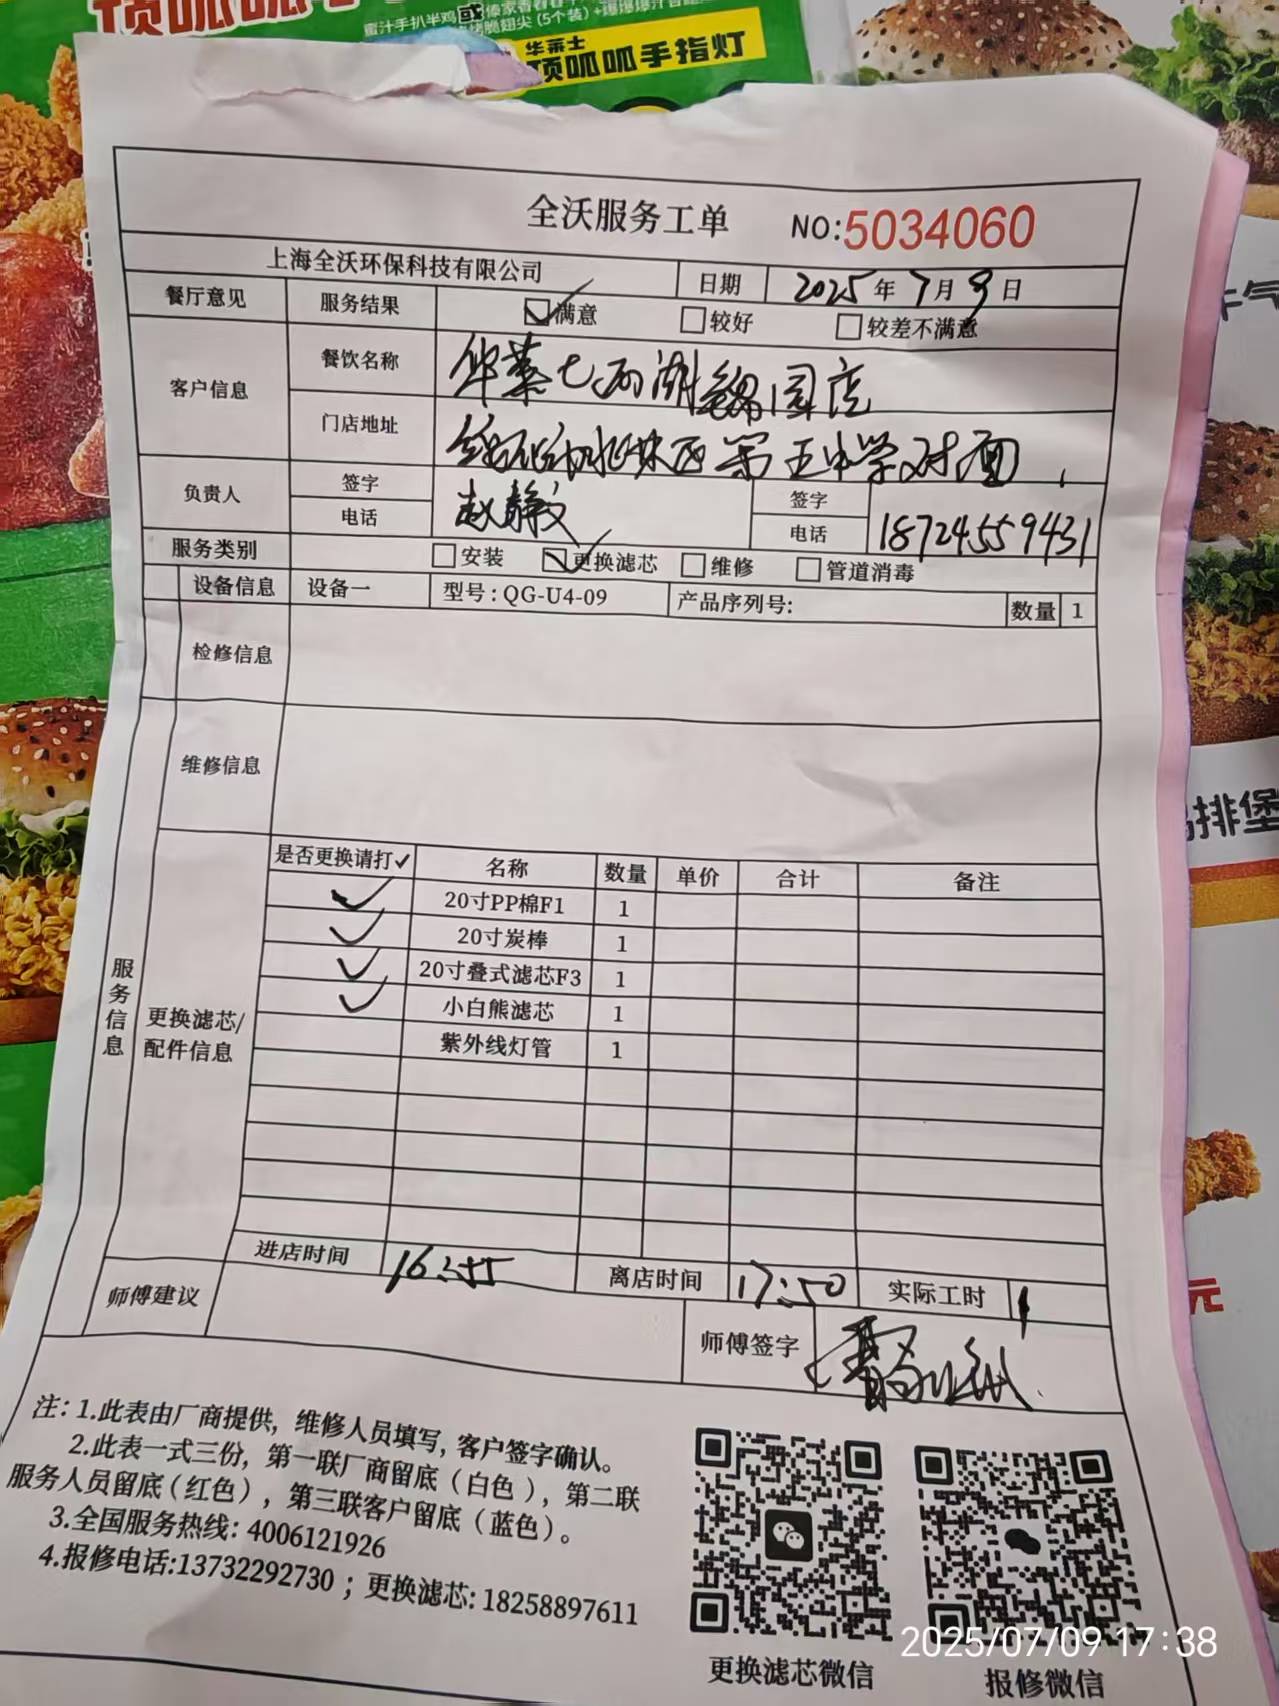 顶呱呱
蜜汁手扒半鸡或
翅尖(5个装)+爆爆爆汁
华莱士
顶呱呱手指灯
全沃服务工单 NO:5034060
上海全沃环保科技有限公司 日期 2025年7月9日
餐厅意见 服务结果 满意 较好 较差不满意
客户信息 餐饮名称 华莱士 店
门店地址 第五中学对面
负责人 签字 赵静文 签字
电话 电话 18724559431
服务类别 安装 更换滤芯 维修 管道消毒
设备信息 设备一 型号:QG-U4-09 产品序列号: 数量 1
检修信息
维修信息
排堡
服务信息
更换滤芯/
配件信息
是否更换请打✓ 名称 数量 单价 合计 备注
✓ 20寸PP棉F1 1
✓ 20寸炭棒 1
✓ 20寸叠式滤芯F3 1
✓ 小白熊滤芯 1
紫外线灯管 1
进店时间 16:55 离店时间 17:50 实际工时 1
元
师傅建议 师傅签字
注:1.此表由厂商提供,维修人员填写,客户签字确认。
2.此表一式三份,第一联厂商留底(白色),第二联
服务人员留底(红色),第三联客户留底(蓝色)。
3.全国服务热线:4006121926
4.报修电话:13732292730;更换滤芯:18258897611
更换滤芯微信 报修微信
2025/07/09 17:38